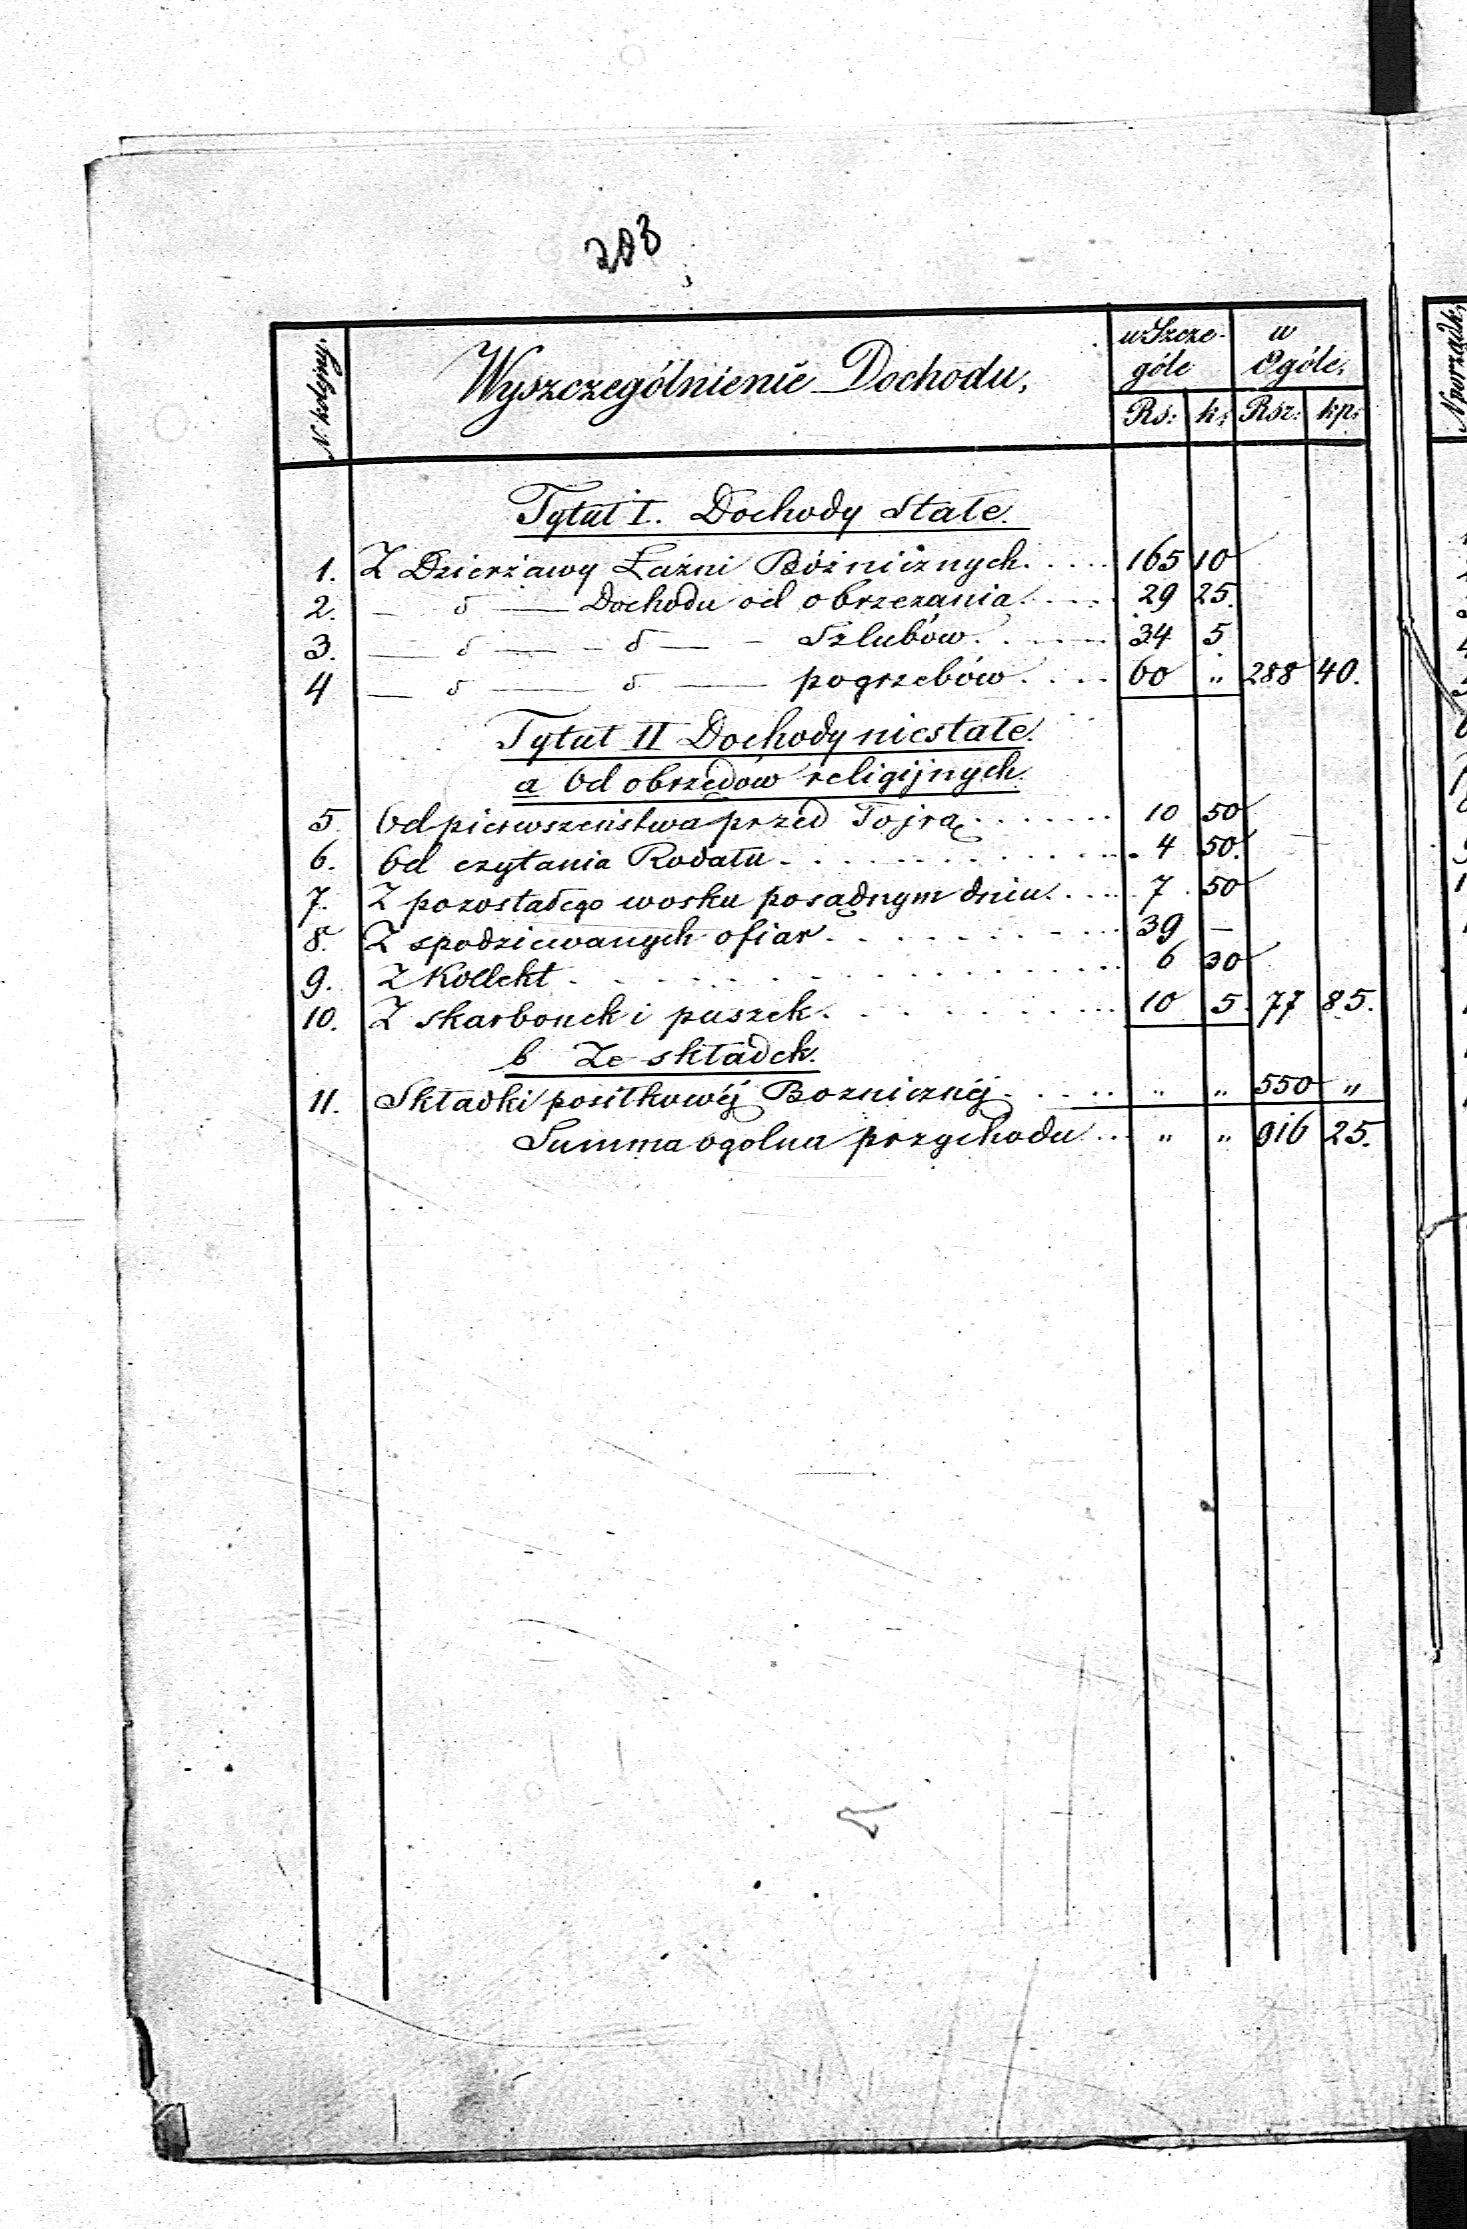 203
N. kolejny.
Wyszczególnienie Dochodu,
w Szcze-
góle
w
Ogóle,
Rs: k: Rsr: kp:
Tytuł I. Dochody Stałe.
1. Z Dzierżawy Łaźni Bóżnicznych. 165 10
2. — d — Dochodu od obrzezania. 29 25.
3. — d — — d — Szlubów. 34 5
4 — d — d — pogrzebów. 60 „ 288 40.
Tytuł II Dochody niestałe.
a Od obrzędów religijnych.
5. Od pierwszeństwa przed Tojrą. 10 50
6. Od czytania Rodału. 4 50.
7. Z pozostałego wosku po sądnym dniu. 7 50
8. Z spodziewanych ofiar. 39 —
9. Z Kollekt. 6 30
10. Z skarbonek i puszek. 10 5. 77 85.
b Ze składek.
11. Składki posiłkowéj Boznicznéj. „ „ 550 „
Summa ogolna przychodu „ „ 916 25.
N porządk.